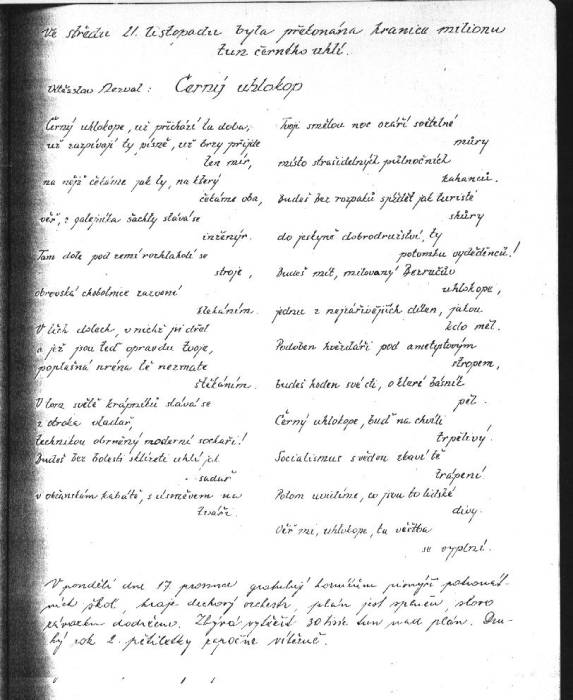 Ve středu 21. listopadu byla překonána hranice milionu
tun černého uhlí.
Vítězslav Nezval: Černý uhlokop
Černý uhlokope, už přichází ta doba,
už zazpívají ty písně, už brzy přijde
ten mír,
na nějž čekáme jak ty, na který
čekáme oba,
věř, z galejníka šachty stává se
inženýr.
Tam dole pod zemí rozhlaholí se
stroje,
obrovská chobotnice zazvoní
klekáním.
V těch dolech, v nichž jsi dřel
a jež jsou teď opravdu tvoje,
poplašná siréna tě nezmate
štěkáním.
V tom světě krápníků stává se
z otroka vladař,
technikou obrněný moderní sochaři!
Budeš bez bolesti sklízeti uhlí jak
sadař
v občanském kabátě, s úsměvem na
tváři.
Tvoji smělou noc ozáří světelné
můry
místo strašidelných půlnočních
kahanců.
Budeš bez rozpaků spěchat jak turisté
skúry
do jeskyně dobrodružství, ty
potomku vyděděnců!
Budeš mít, milovaný Bezručův
uhlokope,
jednu z nejzářivějších dílen, jakou
kdo měl.
Podoben hvězdáři pod ametystovým
stropem,
budeš hoden své cti, o které básník
pěl.
Černý uhlokope, buď na chvíli
trpělivý.
Socialismus s vědou zbaví tě
trápení
Potom uvidíme, co jsou to lidské
divy.
Věř mi, uhlokope, ta věštba
se vyplní.
V pondělí dne 17. prosince gratulují horníkům pionýři patronát-
ních škol, hraje dechový orchestr, plán jest splněn, slovo
závazku dodrženo. Zbývá vytěžit 30 tisíc tun nad plán. Dru-
hý rok 2. pětiletky započne vítězně.